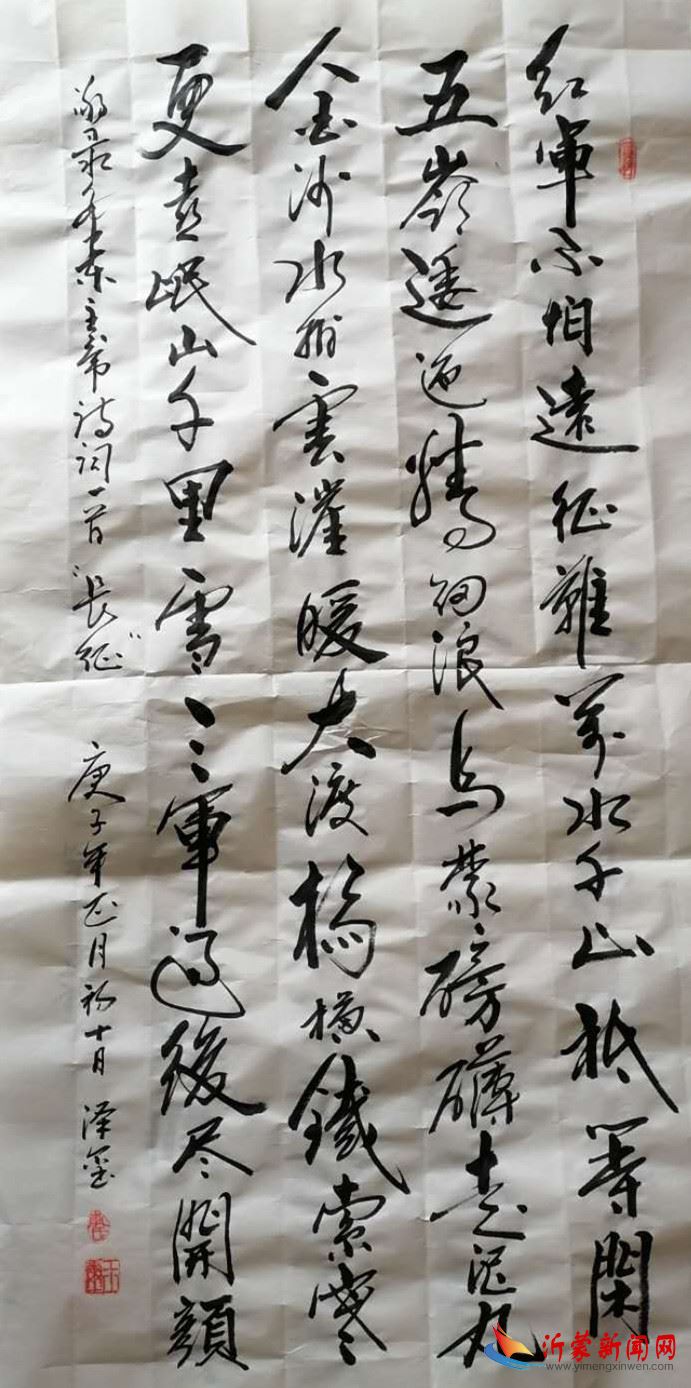 紅軍不怕遠征難萬水千山祇等閑
五嶺逶迤騰細浪烏蒙磅礴走泥丸
金沙水拍雲漄暖大渡橋橫鐵索寒
更喜岷山千里雪三軍過後尽開顏
敬录毛泽東主席诗词一首“長征”
庚子年正月初十月 泽玺
沂蒙新闻网
www.yimengxinwen.com